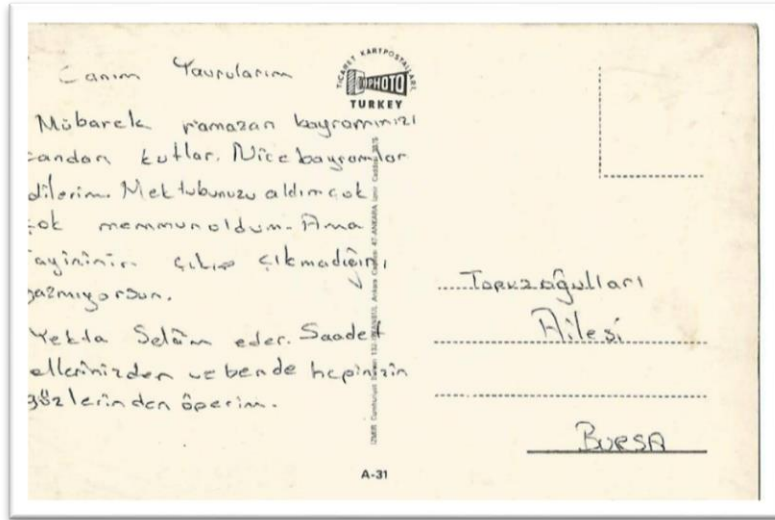 Canım Yavrularım
Mübarek ramazan bayramınızı
candan kutlar. Nice bayramlar
dilerim. Mektubunuzu aldım çok
çok memnun oldum. Ama
tayininin çıkıp çıkmadığını
yazmıyorsun.
Yekta Selâm eder. Saadet
ellerinizden ve bende hepinizin
gözlerinden öperim.
TİCARET KARTPOSTALLARI
PHOTO
TURKEY
A-31
Ailesi
BURSA